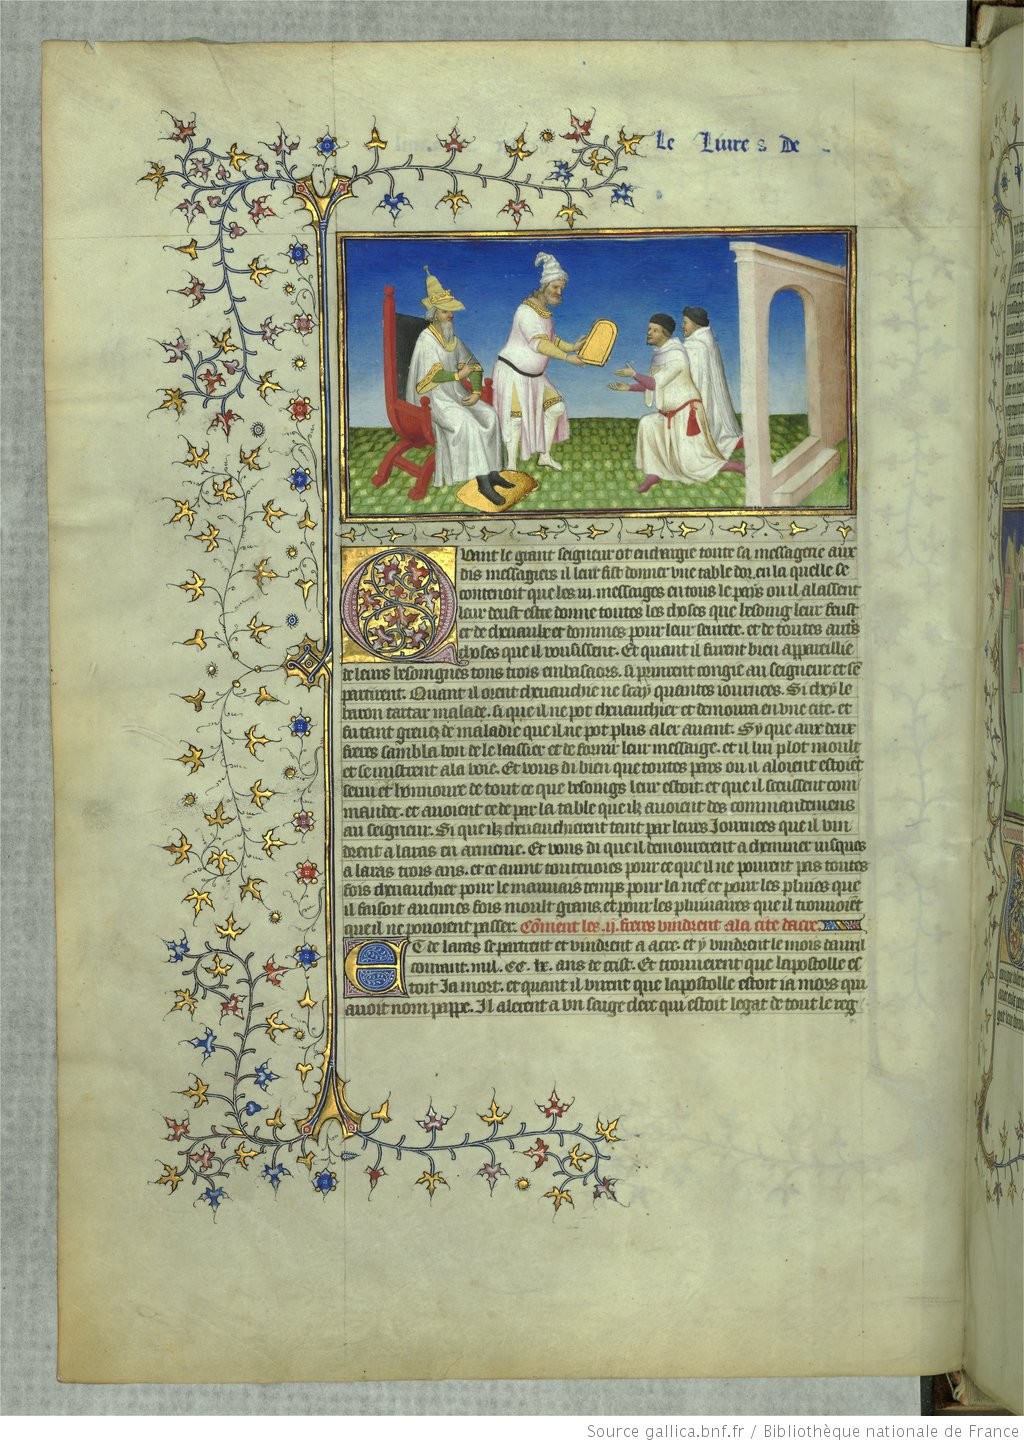 Le Liure s De
Quant le grant seigneur ot enchargie toute sa messagerie aux
dis messagiers il leur fist donner vne table dor, en la quelle se
contenoit que les .iii. messaiges en tous le pays ou il alassent
leur deust estre donne toutes les choses que besoing leur feust
et de cheuaulx et dommes pour leur seurete. et de toutes autres
choses que il voudissent. Et quant il furent bien appareillie
de leurs besoingnes tous trois embasaors. si prinrent congie au seigneur et se
partirent. Quant il orent cheuauchie ne scay quantes iournees. Si chey le
baron tartar malade. si que il ne pot cheuauchier et demoura en vne cite. et
fu tant greuez de maladie que il ne pot plus aler auant. Sy que aux deux
freres sambla bon de le laissier et de fornir leur messaige. et il lui plot moult
et se mistrent a la voie. Et vous di bien que toutes pars ou il aloient estoient
serui et honnoure de tout ce que besoings leur estoit. et que il sceussent com
mander. et auoient ce de par la table que ilz auoient des commandemens
au seigneur. Si que ilz cheuauchierent tant par leurs Iournees que il vin
drent a laras en armenie. Et vous di que il demourerent a cheminer iusques
a laras trois ans. et ce auint toutevoies pour ce que il ne pouient pas toutes
fois cheuauchier pour le mauuais temps pour la nef et pour les pluies que
il faisoit aucunes fois moult grans. et pour les pluuiaires que il trouuoient
que il ne pouoient passer. Coment les .ij. freres vindrent a la cite dacre.
Et de laras se partirent et vindrent a acre. et y vindrent le mois dauril
courant. mil. CC. lx. ans de crist. Et trouuerent que lapostolle es
toit Ia mort. et quant il virent que lapostolle estoit ia mors qui
auoit nom pappe. Il alerent a vn saige clerc qui estoit legat de tout le reg
Source gallica.bnf.fr / Bibliothèque nationale de France